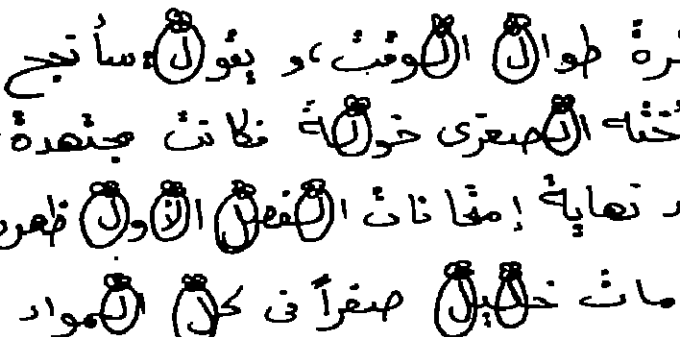 ـرة طوال الوقت، و يقول: سأنجح
ـخته الصغرى خولة فكانت مجتهدة
ـد نهاية إمتحانات الفصل الأول ظهر
ـمات خليل صفراً في كل المواد